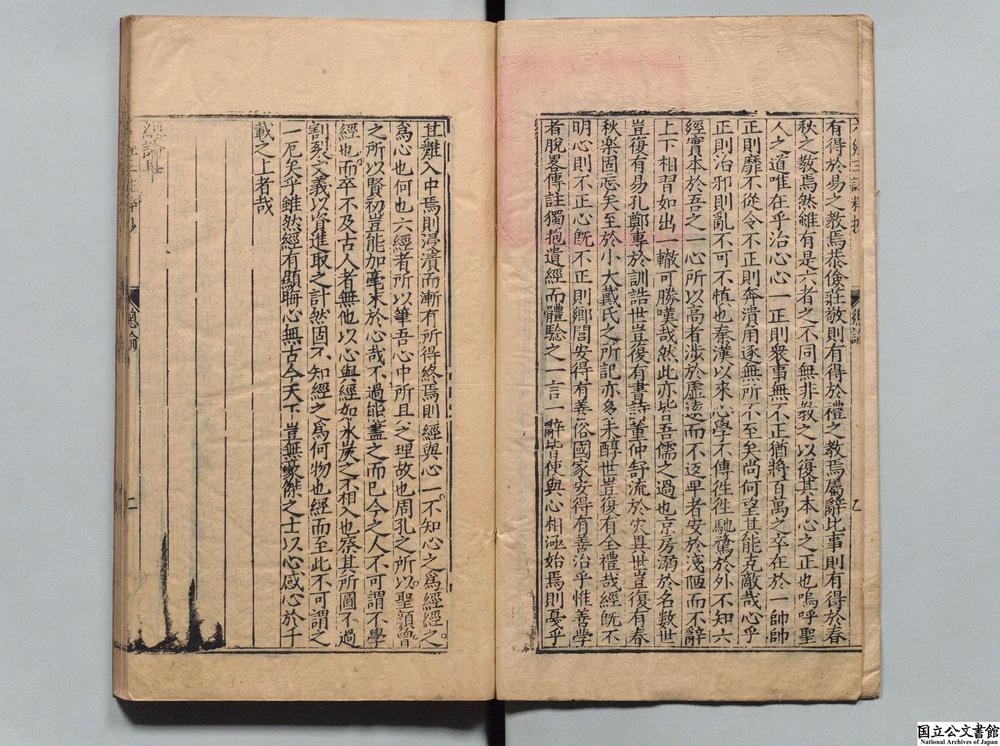 有得於易之教焉恭儉莊敬則有得於禮之教焉屬辭比事則有得於春
秋之教焉然雖有是六者之不同無非教之以復其本心之正也嗚呼聖
人之道唯在乎治心心一正則衆事無不正猶將百萬之卒在於一帥帥
正則靡不從令不正則奔潰角逐無所不至矣尚何望其能克敵哉心乎
正則治邪則亂不可不慎也秦漢以來心學不傳徃徃馳騖於外不知六
經實本於吾之一心所以高者涉於虛遠而不返卑者安於淺陋而不辭
上下相習如出一轍可勝嘆哉然此亦皆吾儒之過也京房溺於名數世
豈復有易孔鄭專於訓詁世豈復有書詩董仲舒流於灾異世豈復有春
秋樂固忘矣至於小大戴氏之所記亦多未醇世豈復有全禮哉經旣不
明心則不正心旣不正則鄉閭安得有善俗國家安得有善治乎惟善學
者脫畧傳註獨抱遺經而體驗之一言一辭皆使與心相涵始焉則戞乎
其難入中焉則浸漬而漸有所得終焉則經與心一不知心之爲經經之
爲心也何也六經者所以筆吾心中所具之理故也周孔之所以聖顔曾
之所以賢初豈能加毫末於心哉不過能盡之而巳今之人不可謂不學
經也而卒不及古人者無他以心與經如氷炭之不相入也察其所圖不過
割裂文義以資進取之計然固不知經之爲何物也經而至此不可謂之
一厄矣乎雖然經有顯晦心無古今天下豈無豪傑之士以心感心於千
載之上者哉
總論
二
國立公文書館
National Archives of Japan